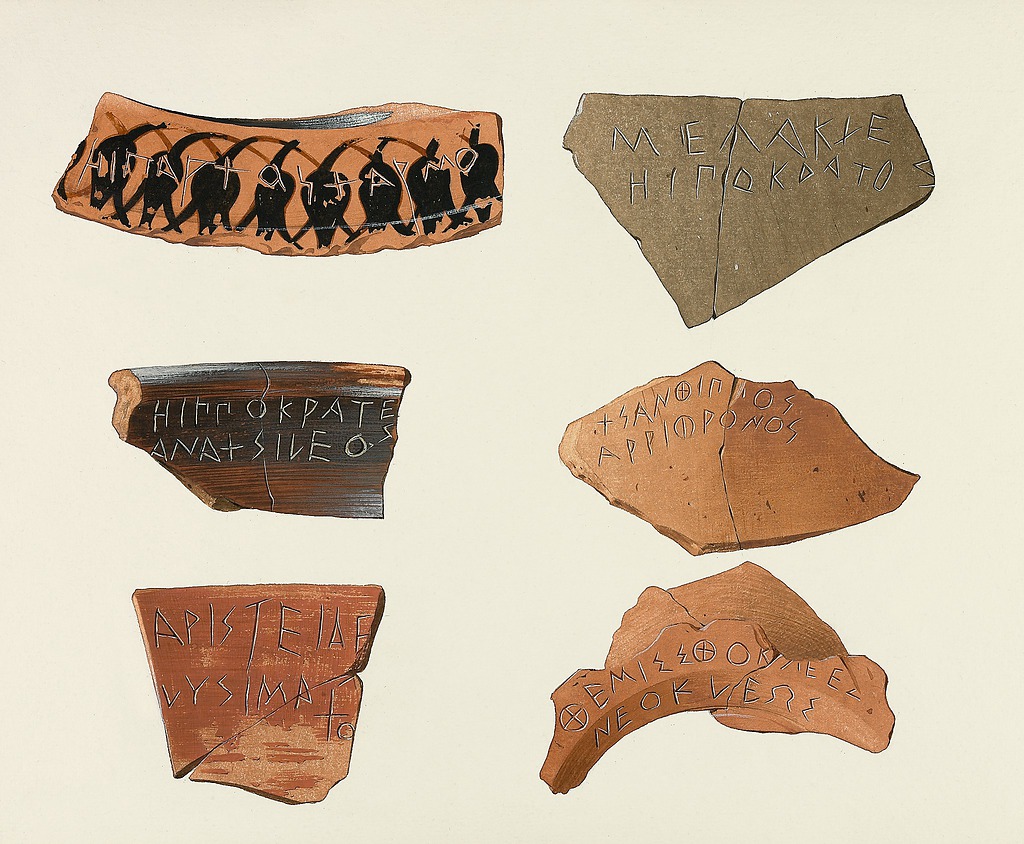 ΗΙΠΑΡΧΟΣ ΧΑΡΜΟ
ΜΕΛΑΚΛΕ
ΗΙΠΟΚΡΑΤΟΣ
ΗΙΠΠΟΚΡΑΤΕΣ
ΑΝΑΧΣΙΛΕΟ
ΧΣΑΝΘΙΠΠΟΣ
ΑΡΡΙΦΡΟΝΟΣ
ΑΡΙΣΤΕΙΔΕ
ΛΥΣΙΜΑΧΟ
ΘΕΜΙΣΣΘΟΚΛΕΕΣ
ΝΕΟΚΛΕΩΣ